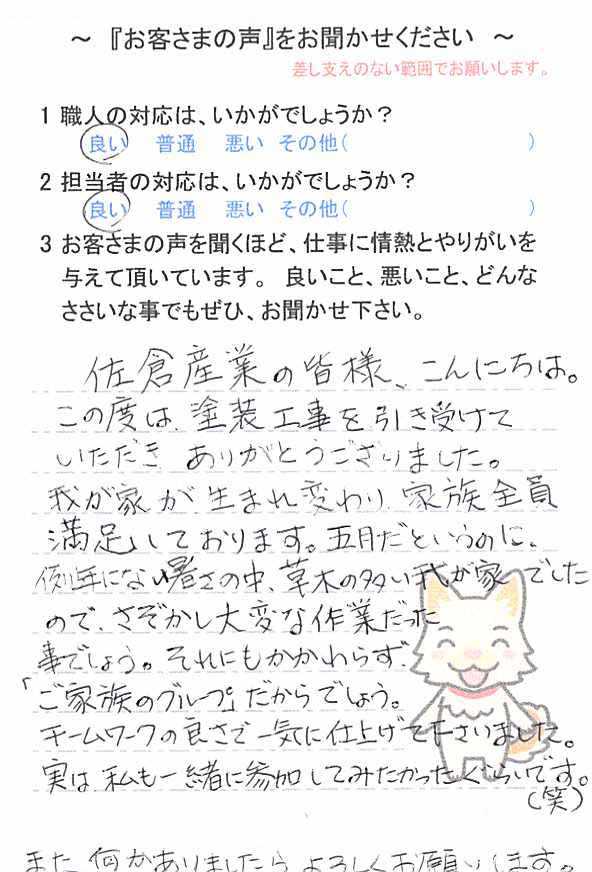 ～ 『お客さまの声』をお聞かせください ～
差し支えのない範囲でお願いします。
1 職人の対応は、いかがでしょうか？
良い 普通 悪い その他( )
2 担当者の対応は、いかがでしょうか？
良い 普通 悪い その他( )
3 お客さまの声を聞くほど、仕事に情熱とやりがいを
与えて頂いています。 良いこと、悪いこと、どんな
ささいな事でもぜひ、お聞かせ下さい。
佐倉産業の皆様、こんにちは。
この度は、塗装工事を引き受けて
いただき ありがとうございました。
我が家が生まれ変わり、家族全員
満足しております。五月だというのに、
例年にない暑さの中、草木の多い我が家でした
ので、さぞかし大変な作業だった
事でしょう。それにもかかわらず、
「ご家族のグループ」だからでしょう。
チームワークの良さで一気に仕上げて下さいました。
実は、私も一緒に参加してみたかったぐらいです。
（笑）
また、何かありましたら、よろしくお願いします。